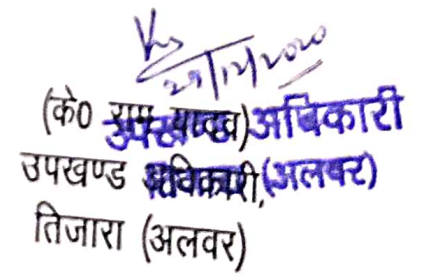 29/12/2020
(के0 राम यादव) अधिकारी
उपखण्ड अधिकारी, (अलवर)
तिजारा (अलवर)